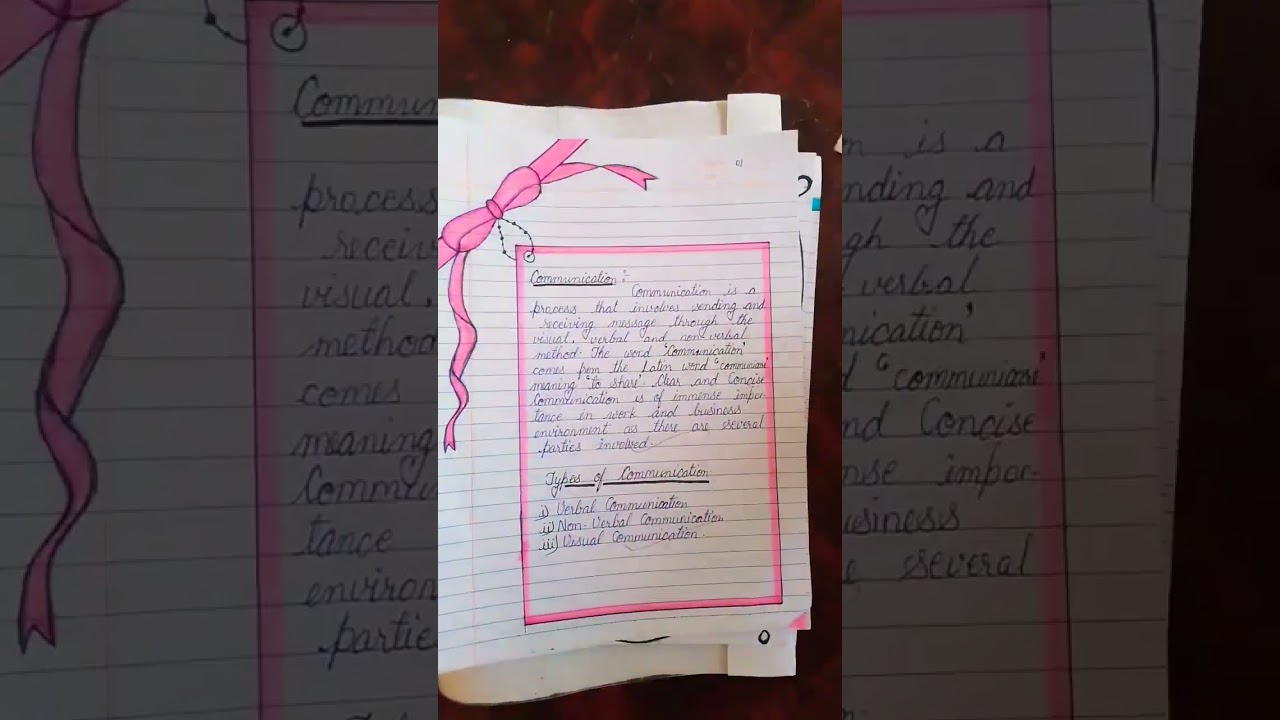 01
Communication :-
Communication is a
process that involves sending and
receiving message through the
visual, verbal and non verbal
method. The word 'Communication'
comes from the Latin word "communicare"
meaning 'to share'. Clear and Concise
Communication is of immense impor-
tance in work and business
environment as there are several
parties involved.
Types of Communication
i) Verbal Communication
ii) Non-Verbal Communication
iii) Visual Communication.